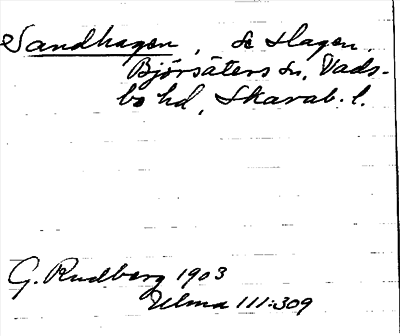 Sandhagen, Se Hagen,
Björsäters sn, Vads-
bo hd, Skarab. l.
G. Rudberg 1903
Ulma 111:309